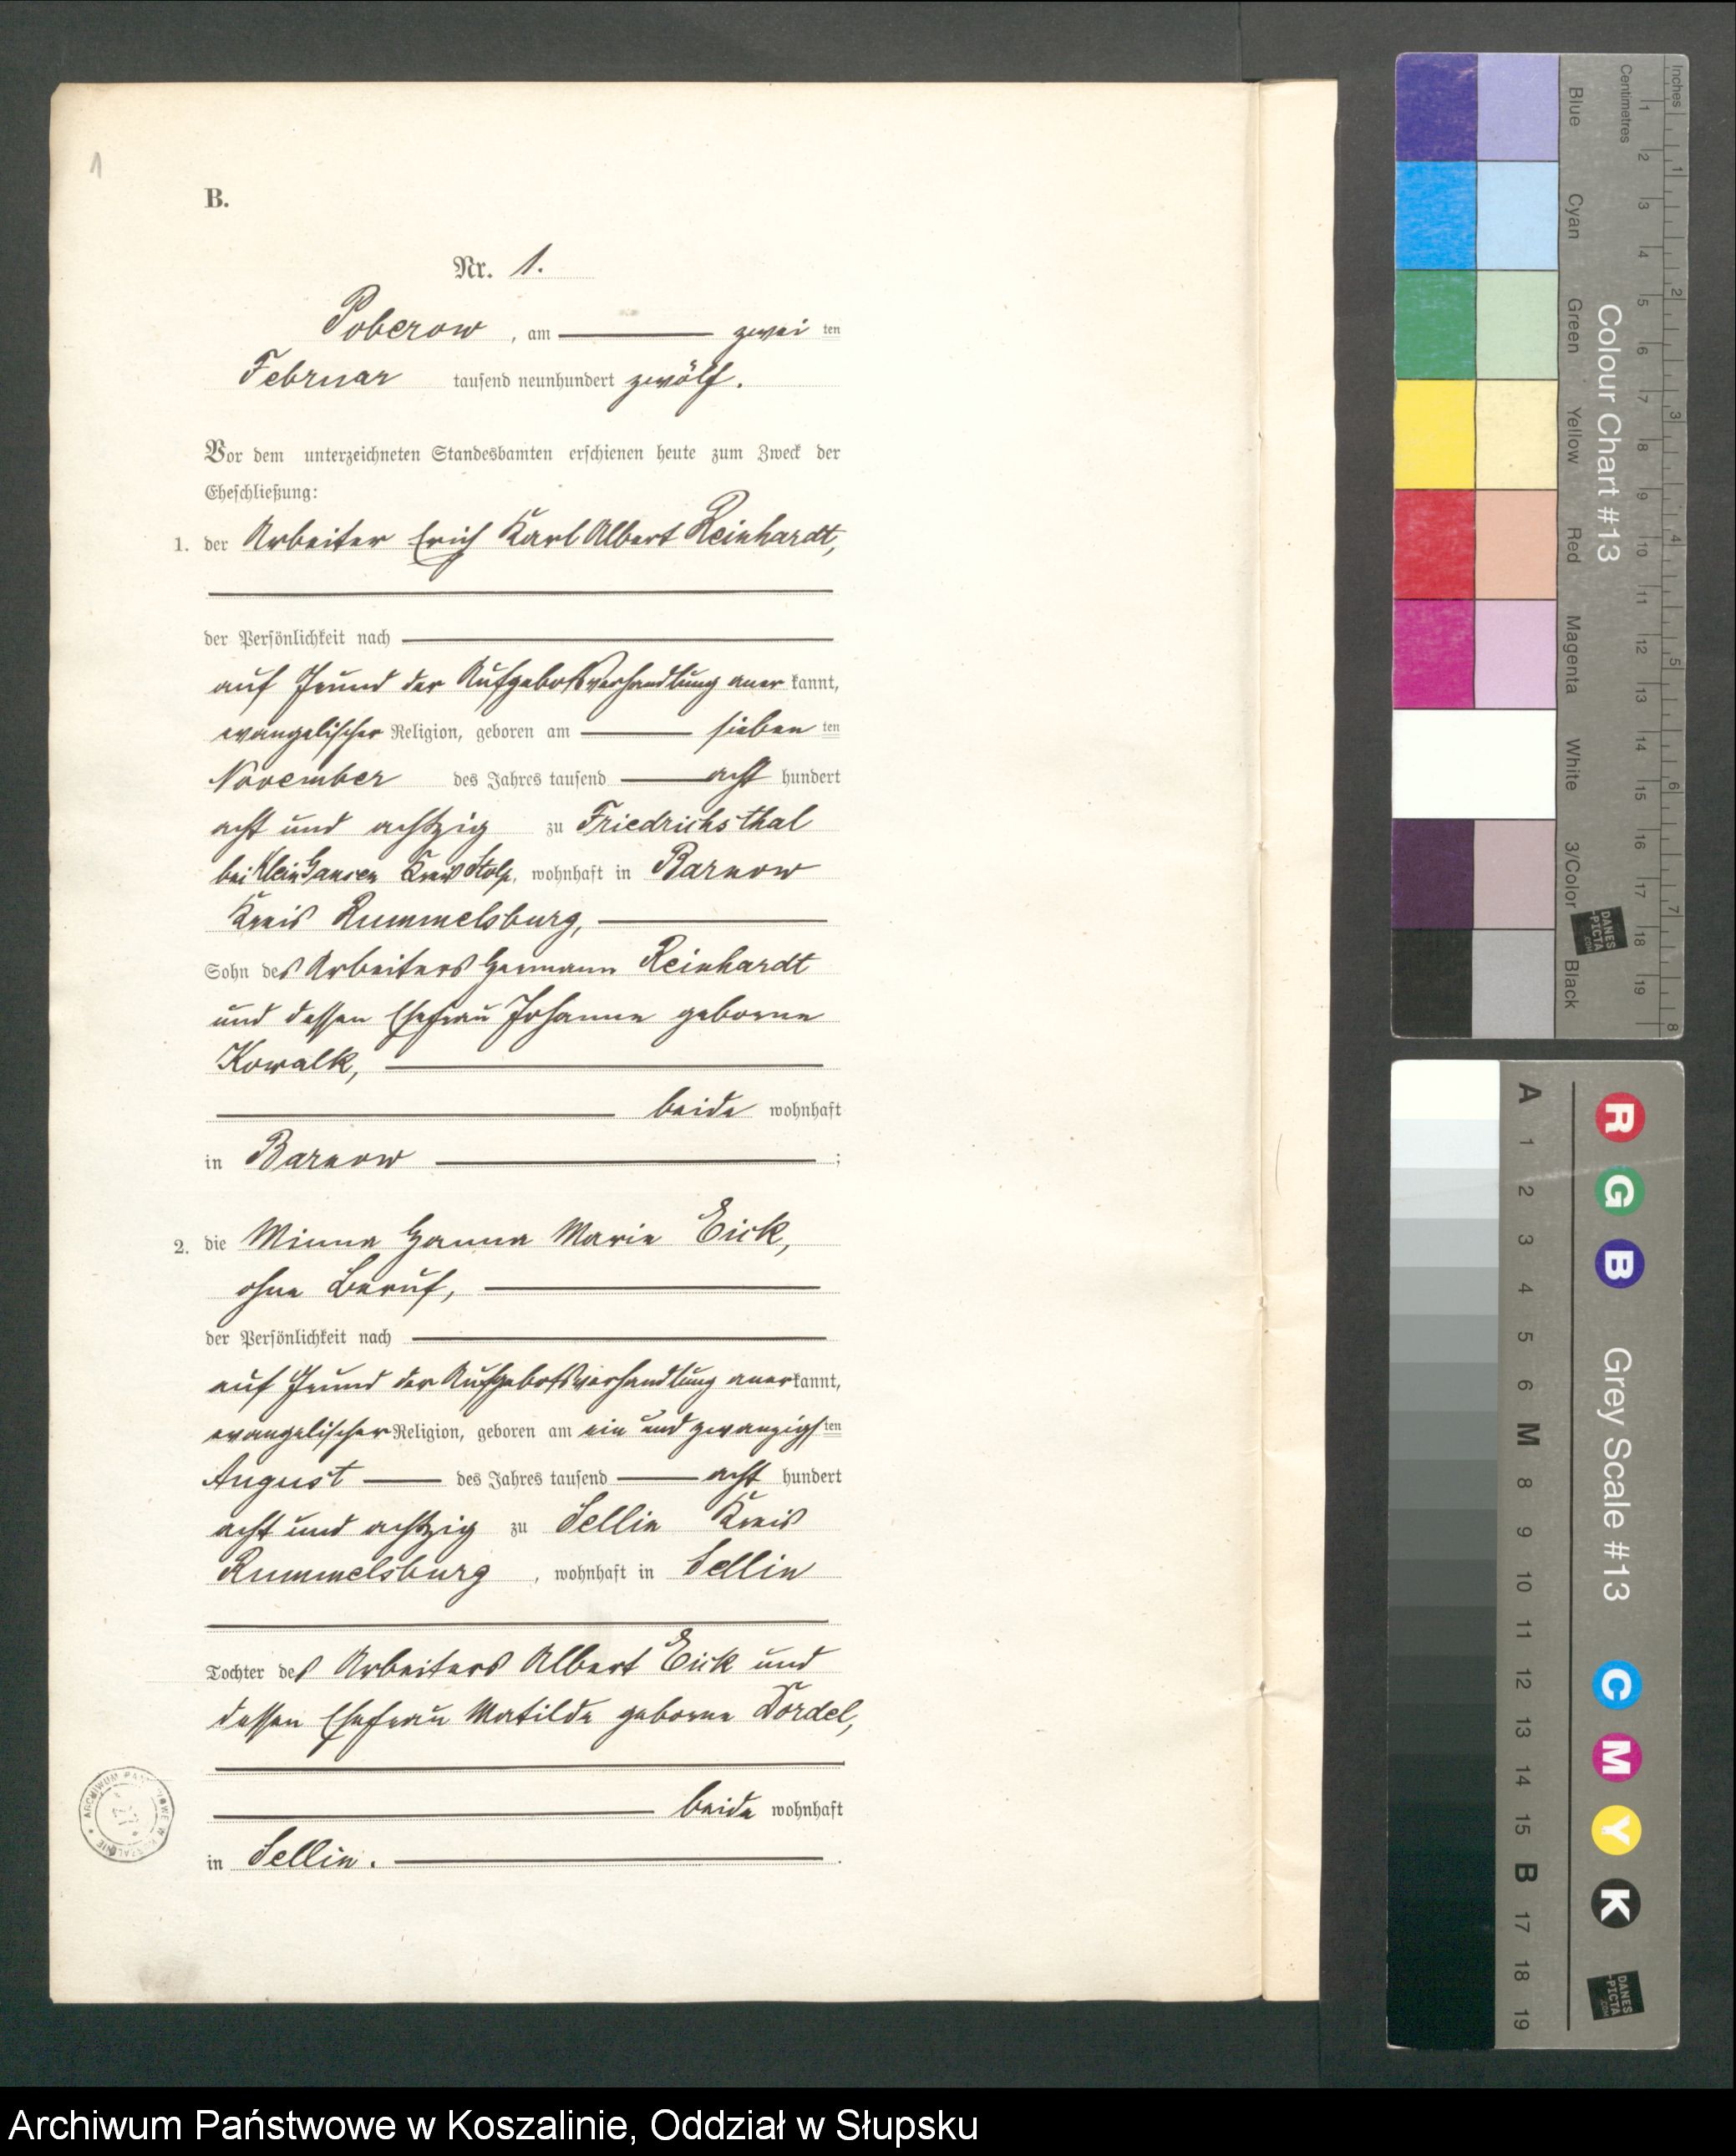 1
B.
Nr. 1.
Poberow, am zwei ten
Februar tausend neunhundert zwölf.
Vor dem unterzeichneten Standesbamten erschienen heute zum Zweck der
Eheschließung:
1. der Arbeiter Erich Karl Albert Reinhardt,
der Persönlichkeit nach
auf Grund der Aufgebotsverhandlung aner kannt,
evangelischer Religion, geboren am sieben ten
November des Jahres tausend acht hundert
acht und achtzig zu Friedrichsthal
bei Klein Gansen Kreis Stolp, wohnhaft in Barnow
Kreis Rummelsburg,
Sohn des Arbeiters Hermann Reinhardt
und dessen Ehefrau Johanne geborne
Kowalk,
beide wohnhaft
in Barnow ;
2. die Minna Hanna Marie Eick,
ohne Beruf,
der Persönlichkeit nach
auf Grund der Aufgebotsverhandlung aner kannt,
evangelischer Religion, geboren am ein und zwanzigs ten
August des Jahres tausend acht hundert
acht und achtzig zu Sellin Kreis
Rummelsburg, wohnhaft in Sellin
Tochter des Arbeiters Albert Eick und
dessen Ehefrau Matilde geborne Dordel,
beide wohnhaft
in Sellin.
Inches
Centimetres
1 2 3 4 5 6 7 8
1 2 3 4 5 6 7 8 9 10 11 12 13 14 15 16 17 18 19
Colour Chart #13
Blue Cyan Green Yellow Red Magenta White 3/Color Black
DANES
-PICTA
.COM
Grey Scale #13
R G B C M Y K
A 1 2 3 4 5 6 M 8 9 10 11 12 13 14 15 B 17 18 19
DANES
-PICTA
.COM
Archiwum Państwowe w Koszalinie, Oddział w Słupsku